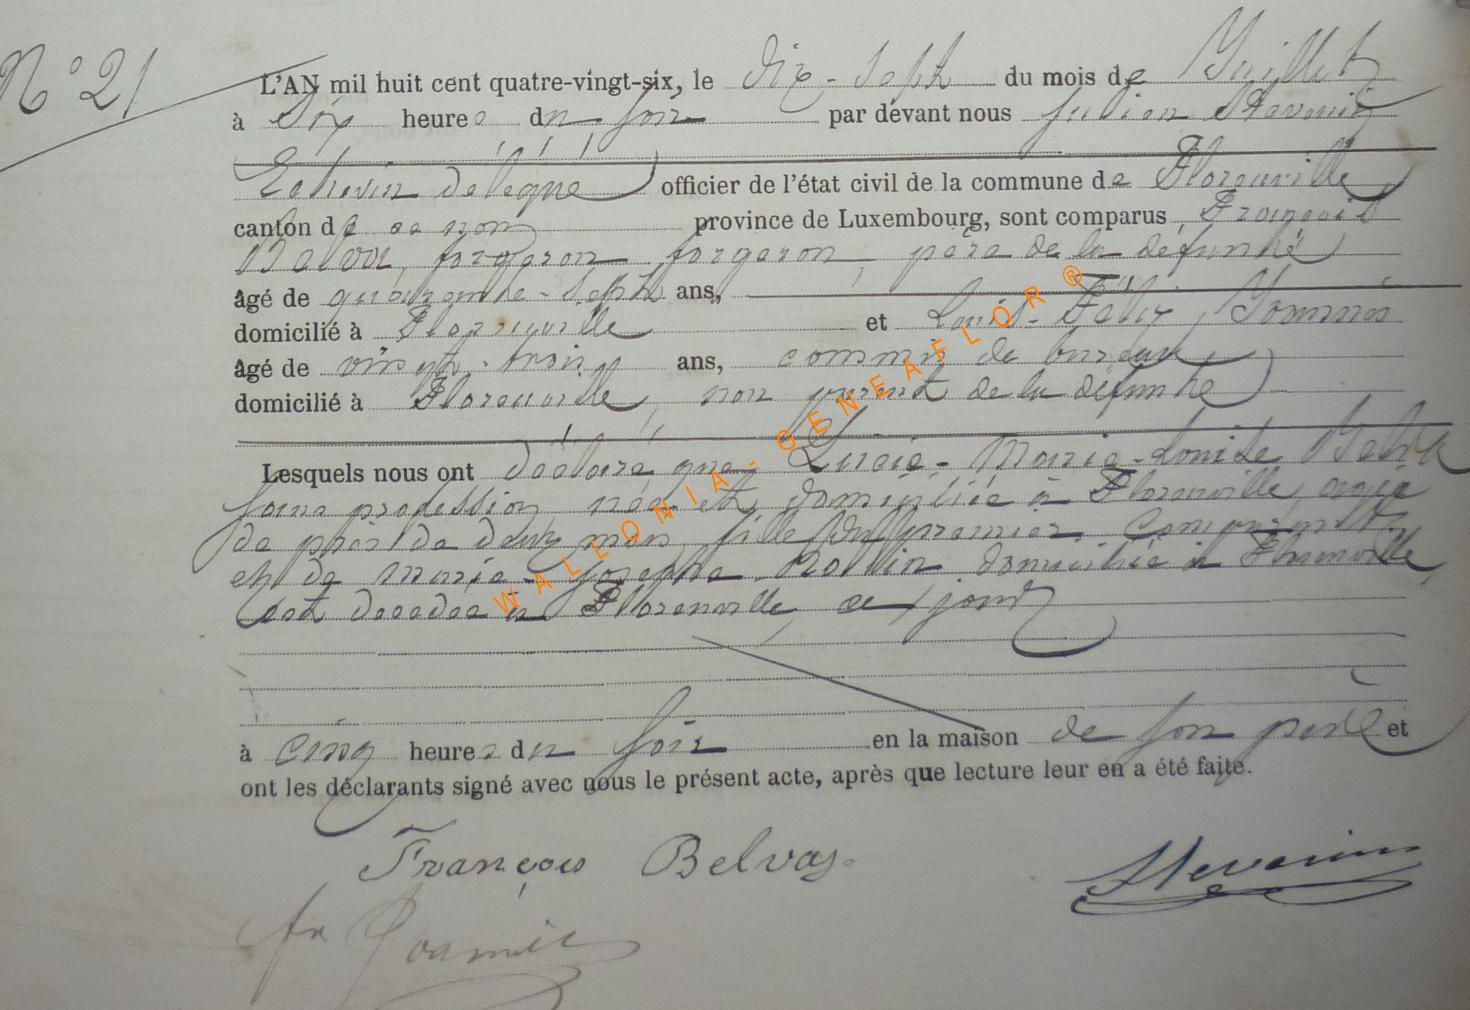 N° 21
L'AN mil huit cent quatre-vingt-six, le dix-sept du mois de Juillet
à Six heures du soir par devant nous Julien
Echevin délégué officier de l'état civil de la commune de Florenville
canton de ce nom province de Luxembourg, sont comparus François
Belva, forgeron forgeron, père de la défunte
âgé de quarante-sept ans,
domicilié à Florenville et Louis-Félix
âgé de vingt-trois ans, commis de bureau
domicilié à Florenville, non parent de la défunte
Lesquels nous ont déclaré que Lucie-Marie-Louise Belva
sans profession née et domiciliée à Florenville, agée
de près de deux mois, fille du premier comparant
et de Marie-Josephe domiciliée à Florenville,
est décédée à Florenville, ce jour
à cinq heures du soir en la maison de son père et
ont les déclarants signé avec nous le présent acte, après que lecture leur en a été faite.
François Belvas
WALLONIA-GENEAFLOR®